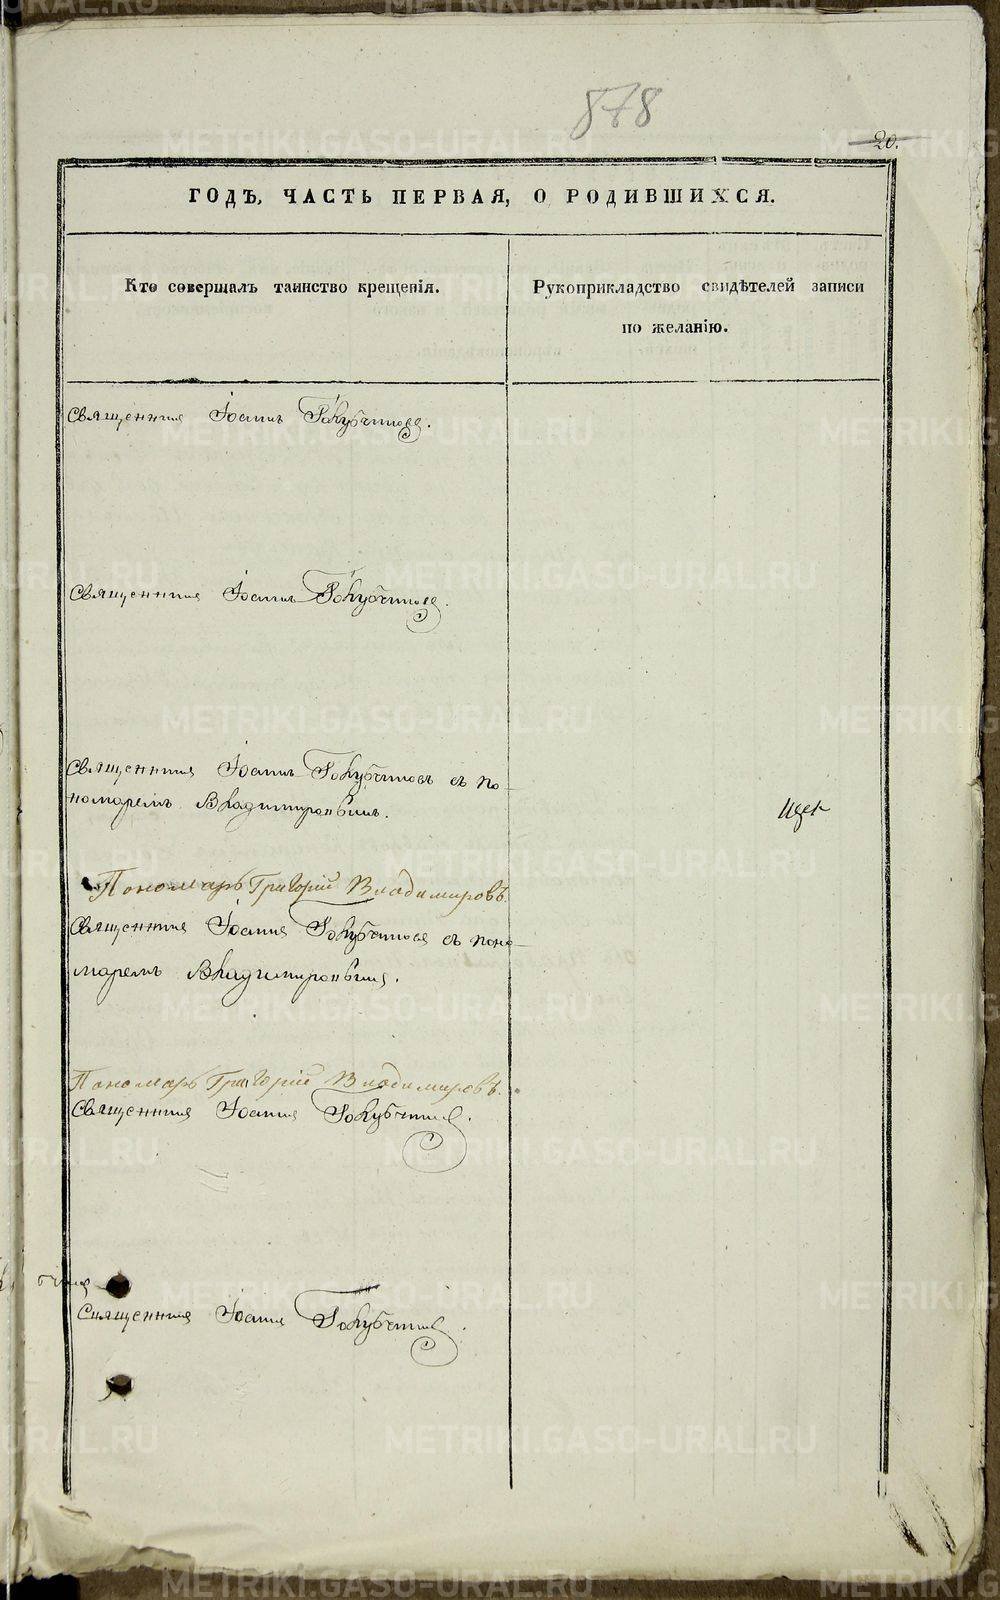 878
20.
ГОДЪ, ЧАСТЬ ПЕРВАЯ, О РОДИВШИХСЯ.
Кто совершалъ таинство крещенія.
Рукоприкладство свидѣтелей записи
по желанію.
Священникъ Іоаннъ Голубчиковъ.
Священникъ Іоаннъ Голубчиковъ.
Священникъ Іоаннъ Голубчиковъ съ по-
номаремъ Владимировымъ.
Пономарь Григорій Владимировъ.
Священникъ Іоаннъ Голубчиковъ съ поно-
маремъ Владимировымъ.
Пономарь Григорій Владимировъ.
Священникъ Іоаннъ Голубчиковъ.
Священникъ Іоаннъ Голубчиковъ.
METRIKI.GASO-URAL.RU